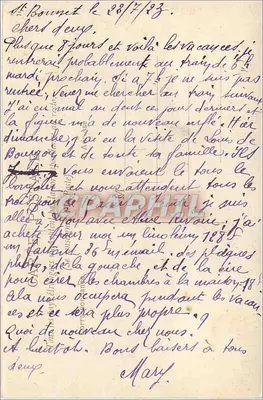 St Bonnet le 28/7/23.
Chers deux.
Plus que 8 jours et voilà les vacances, je
rentrerai probablement au train de 7 h
mardi prochain. Si à 7 h je ne suis pas
rentrée, venez me chercher au train suivant
J'ai eu mal au dent ces jours derniers et
la figure m'a de nouveau enflé. Hier
dimanche, j'ai eu la visite de Louis de
Bourgoin et de toute sa famille. Ils
vous envoient à tous le
bonjour et nous attendent tous les
trois pour
allée à Lyon avec j'ai
acheté pour moi un linoleum
un faitout 36 émail. des plaques
photos, à la gouache et de la cire
pour cirer les chambres à la maison
Cela nous occupera pendant les vacan
ces et ce sera plus propre.
Quoi de nouveau chez nous.
A bientôt. Bons baisers à tous
deux.
Mary
DELCAMPE